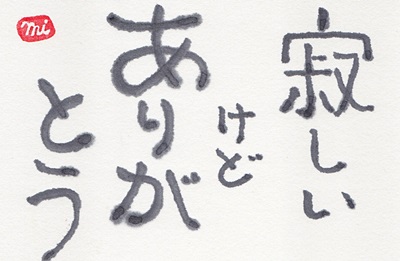 寂しい
けど
ありが
とう
mi